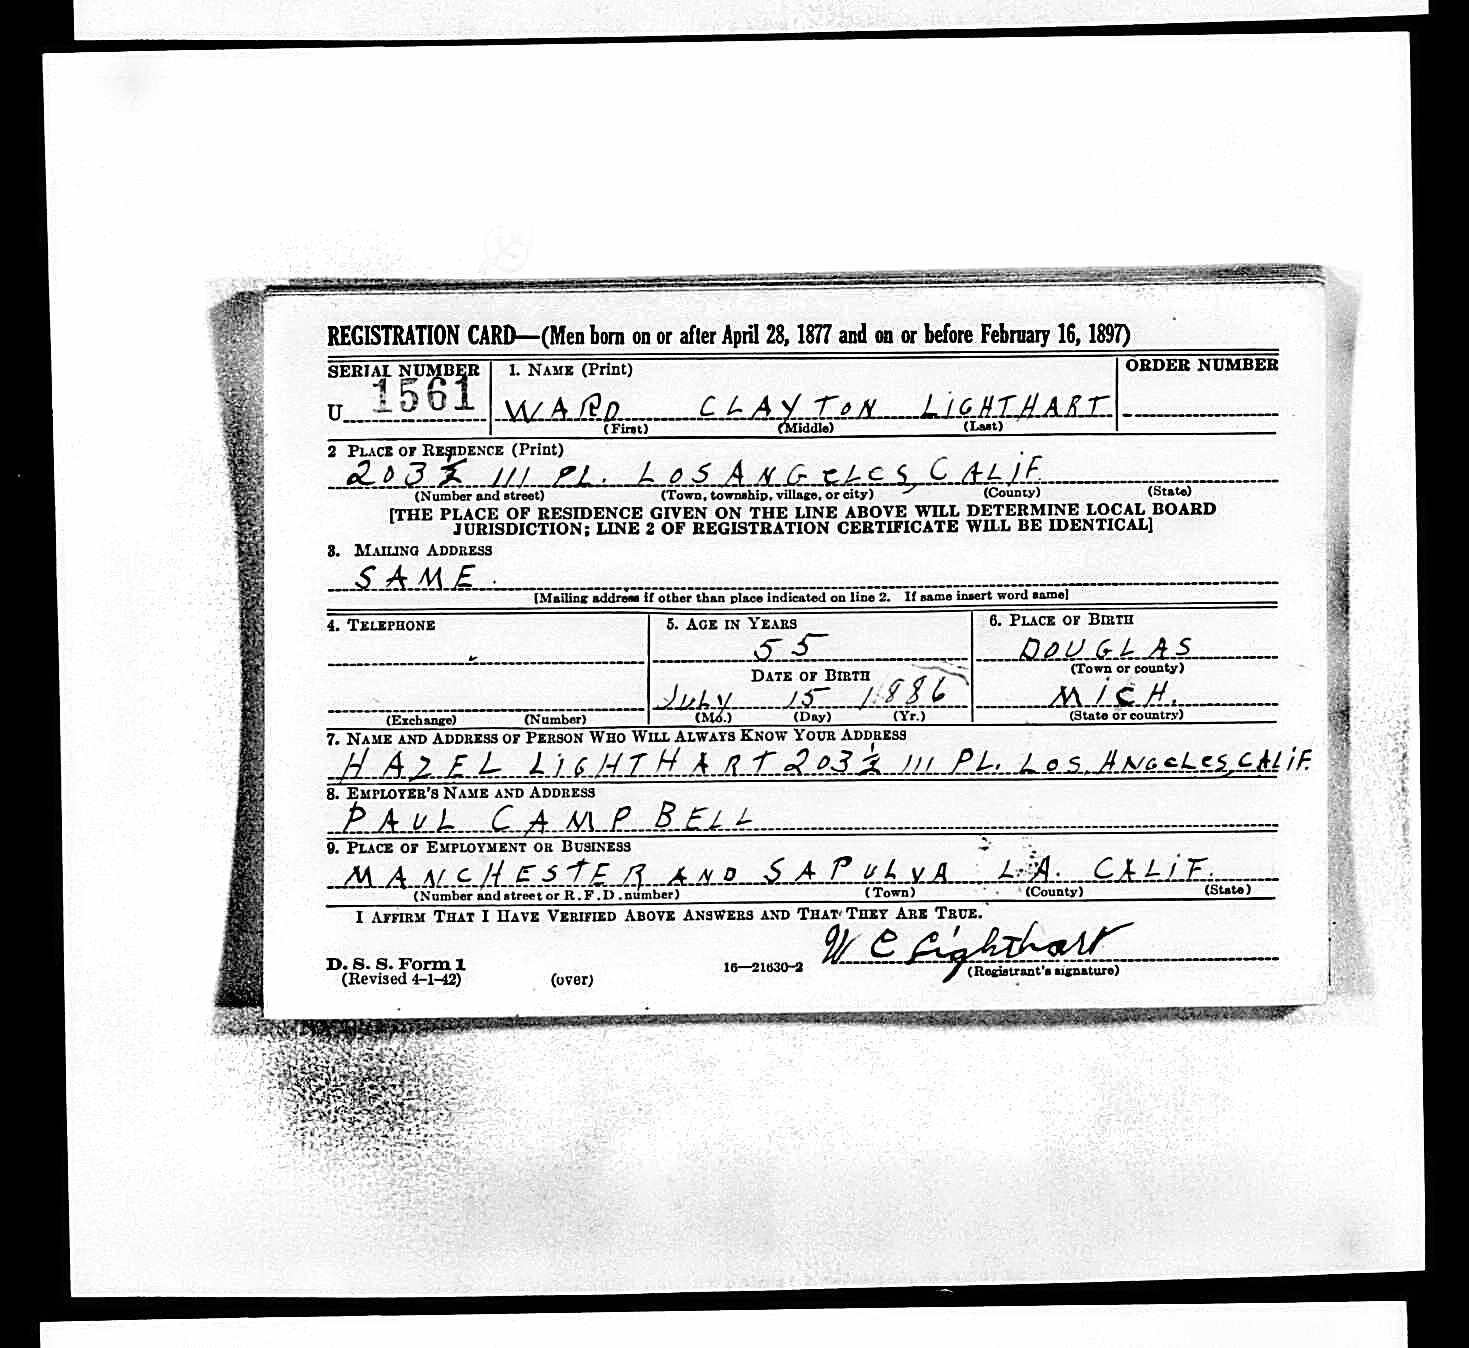 REGISTRATION CARD—(Men born on or after April 28, 1877 and on or before February 16, 1897)
SERIAL NUMBER
1. NAME (Print)
ORDER NUMBER
U 1561
WARD CLAYTON LIGHTHART
(First) (Middle) (Last)
2 PLACE OF RESIDENCE (Print)
203½ 111 PL. LOS ANGELES, CALIF.
(Number and street) (Town, township, village, or city) (County) (State)
[THE PLACE OF RESIDENCE GIVEN ON THE LINE ABOVE WILL DETERMINE LOCAL BOARD
JURISDICTION; LINE 2 OF REGISTRATION CERTIFICATE WILL BE IDENTICAL]
3. MAILING ADDRESS
SAME.
[Mailing address if other than place indicated on line 2. If same insert word same]
4. TELEPHONE
5. AGE IN YEARS
6. PLACE OF BIRTH
55
DOUGLAS
(Town or county)
DATE OF BIRTH
JULY 15 1886
MICH.
(Exchange) (Number)
(Mo.) (Day) (Yr.)
(State or country)
7. NAME AND ADDRESS OF PERSON WHO WILL ALWAYS KNOW YOUR ADDRESS
HAZEL LIGHTHART 203½ 111 PL. LOS ANGELES, CALIF.
8. EMPLOYER'S NAME AND ADDRESS
PAUL CAMPBELL
9. PLACE OF EMPLOYMENT OR BUSINESS
MANCHESTER AND SAPULVA L.A. CALIF.
(Number and street or R. F. D. number) (Town) (County) (State)
I AFFIRM THAT I HAVE VERIFIED ABOVE ANSWERS AND THAT THEY ARE TRUE.
W C Lighthart
D. S. S. Form 1
(Revised 4-1-42)
(over)
16—21630-2
(Registrant's signature)